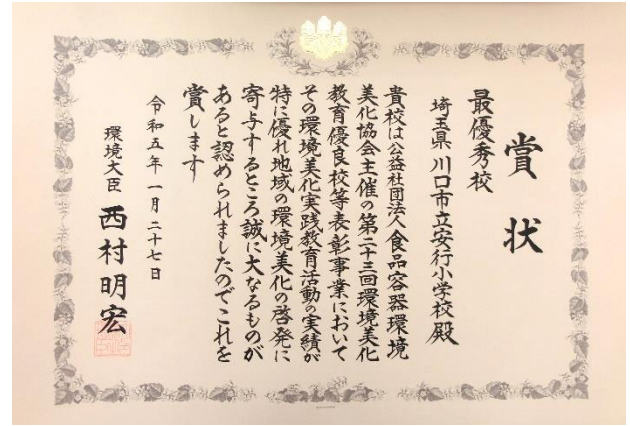 賞状
最優秀校
埼玉県川口市立安行小学校殿
貴校は公益社団法人食品容器環境
美化協会主催の第二十三回環境美化
教育優良校等表彰事業において
その環境美化実践教育活動の実績が
特に優れ地域の環境美化の啓発に
寄与するところ誠に大なるものが
あると認められましたのでこれを
賞します
令和五年一月二十七日
環境大臣 西村明宏